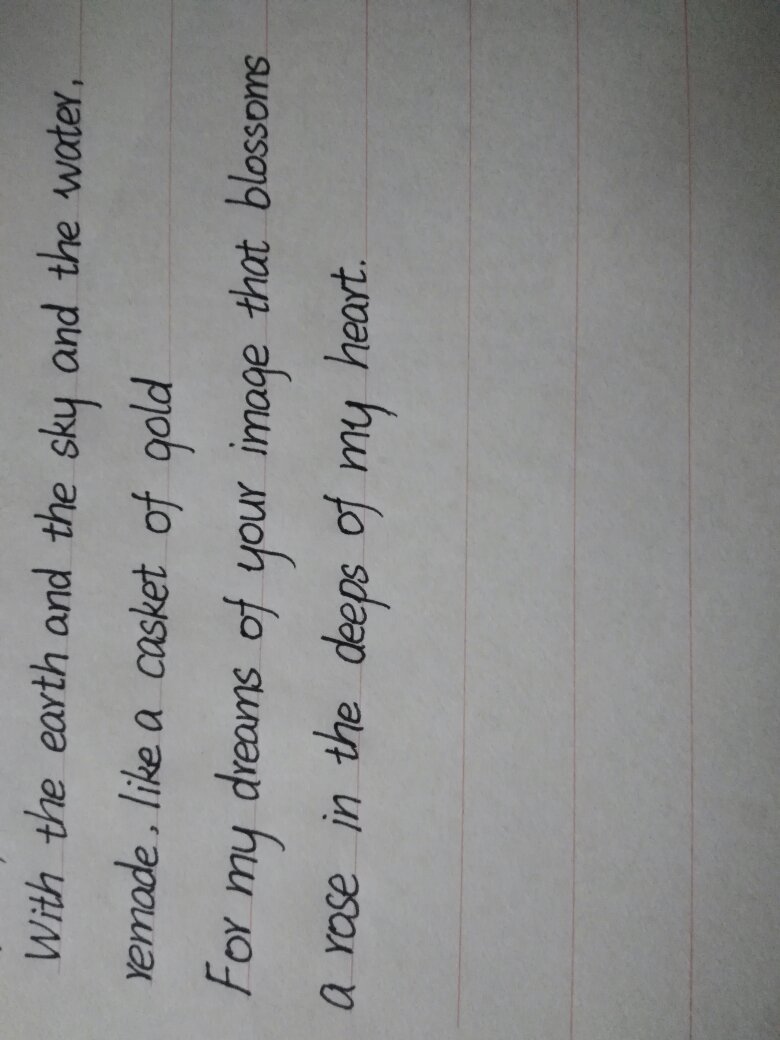 With the earth and the sky and the water,
remade, like a casket of gold
For my dreams of your image that blossoms
a rose in the deeps of my heart.